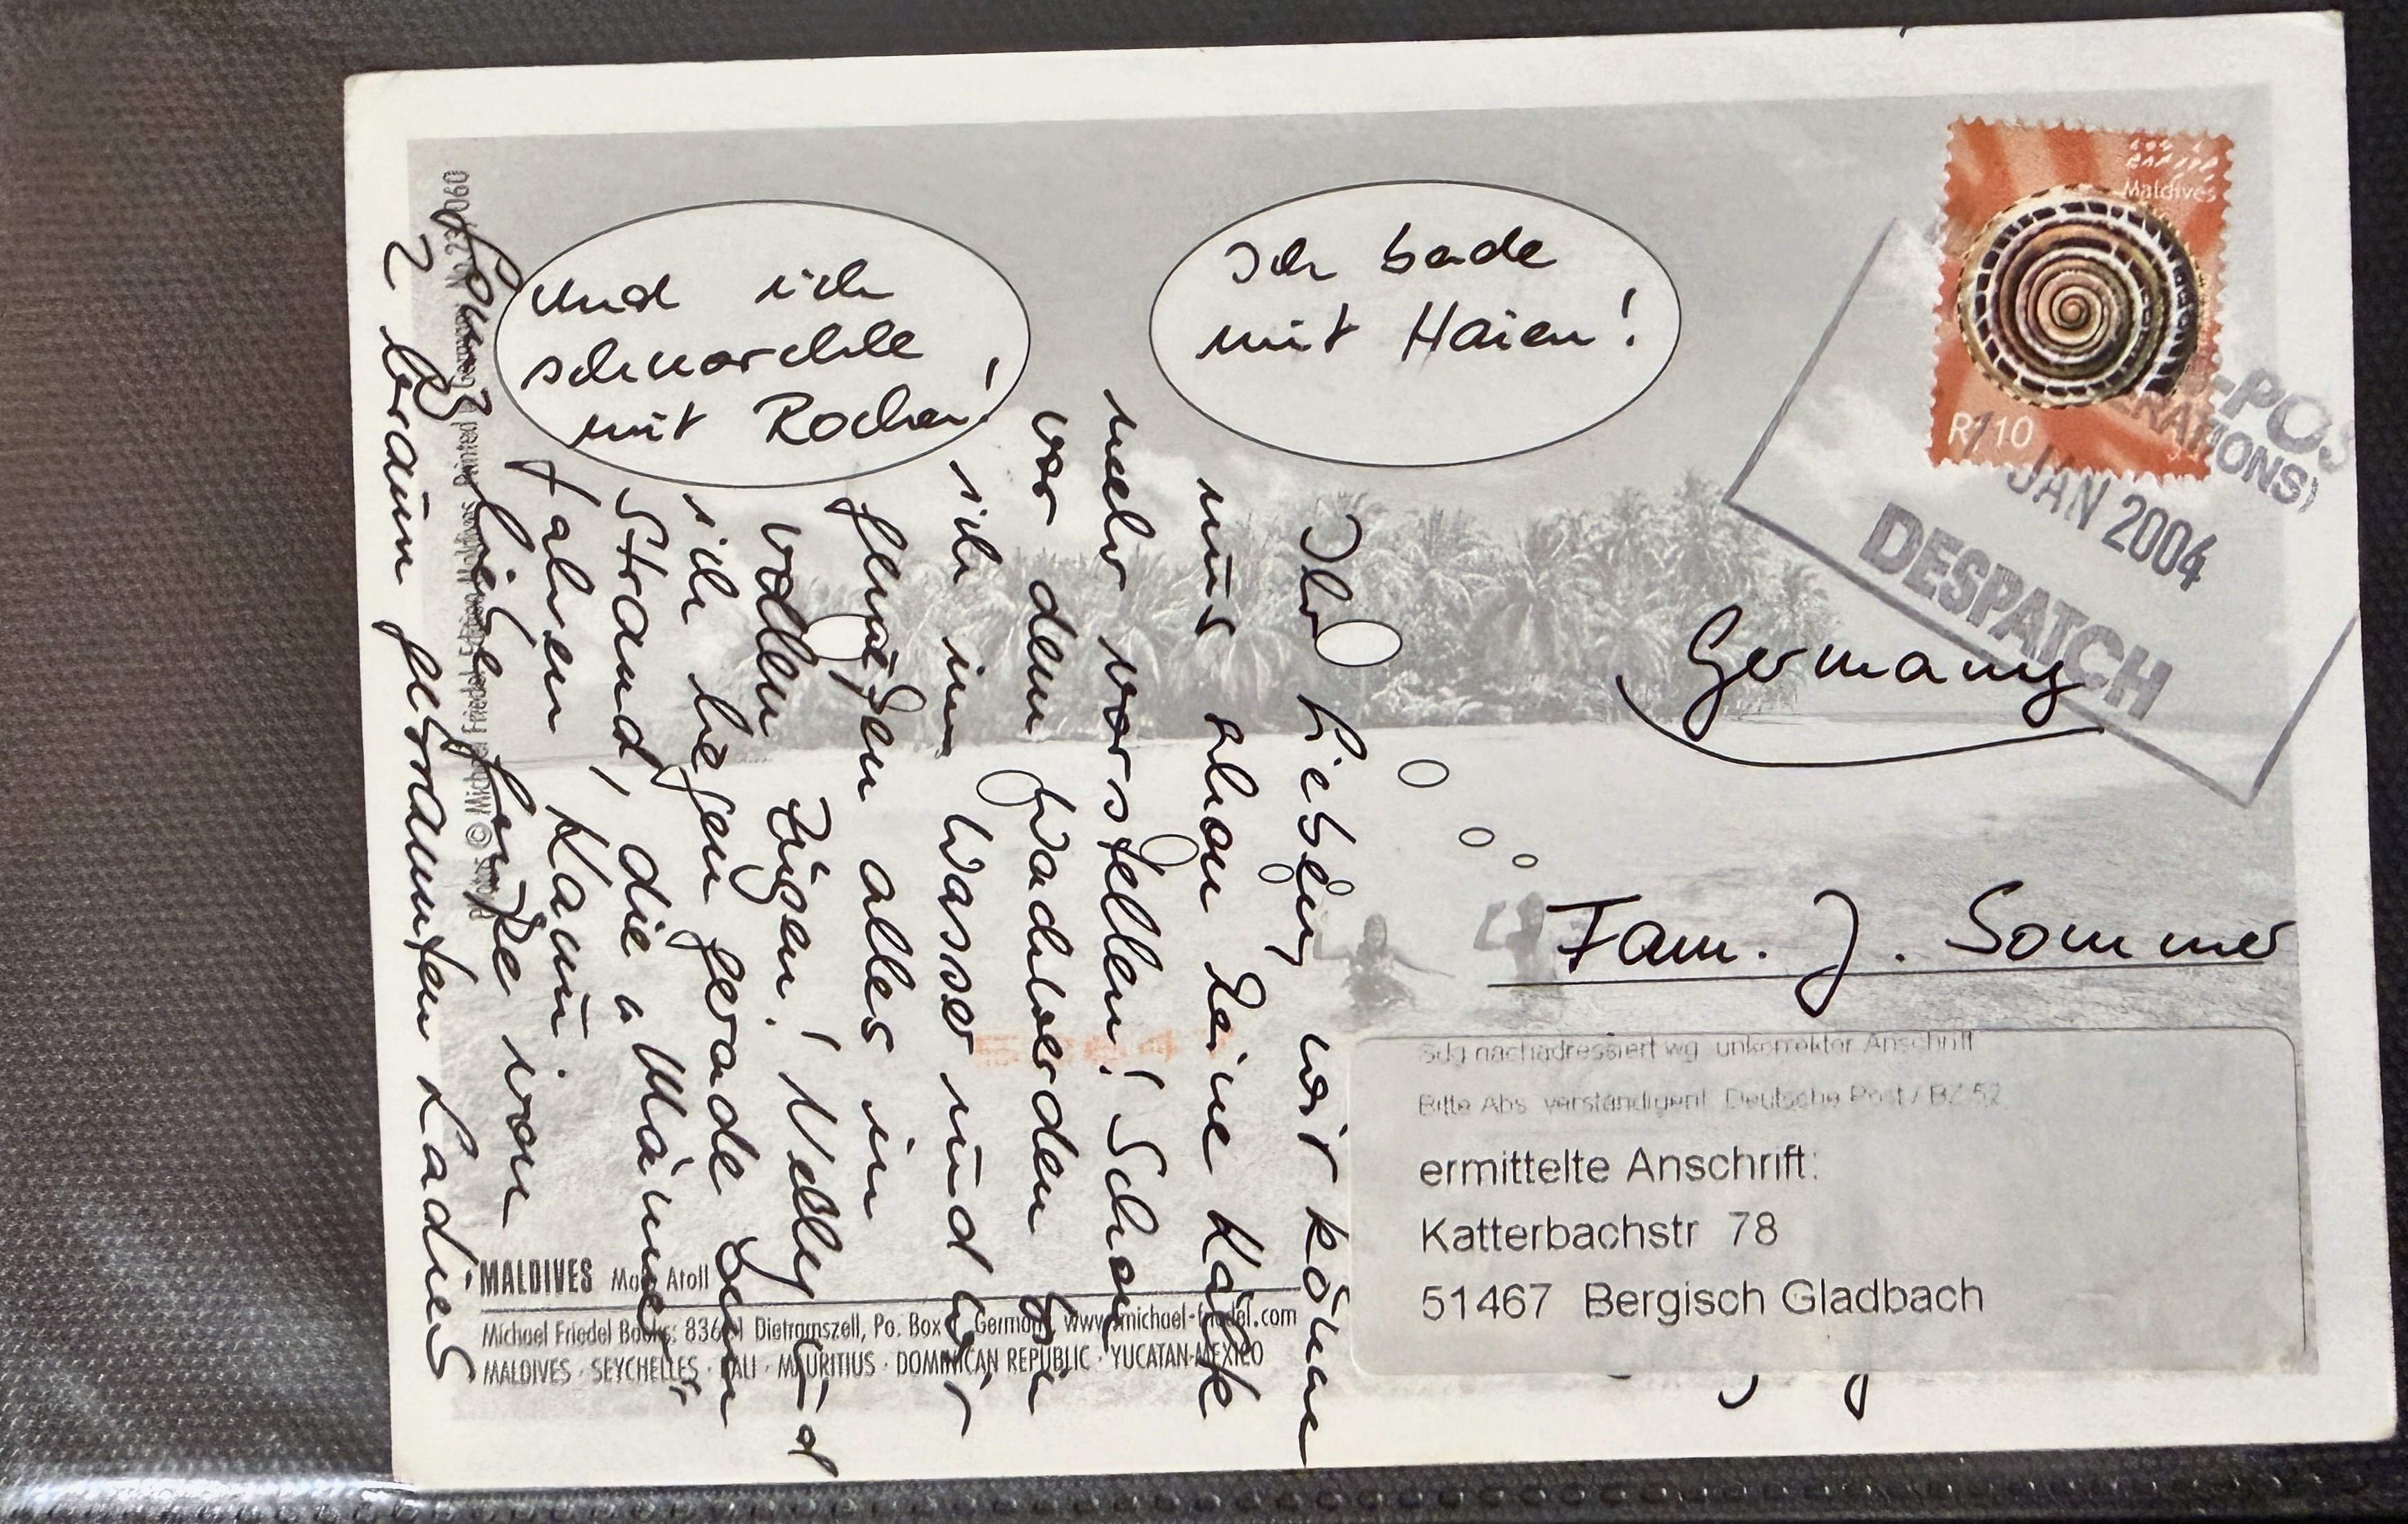 Maldives
R 10
-POS
ERATIONS)
JAN 2004
DESPATCH
Und ich
schnorchle
mit Rochen!
Ich bade
mit Haien!
Ihr Lieben, wir können
uns schon keine Kälte
mehr vorstellen! Schon
vor dem Wachwerden bin
ich im Wasser und
genieße alles in
vollen Zügen! Nelly und
ich liegen gerade am
Strand, die "Männer"
fahren Kanu.
Ganz liebe Grüße von
2 braun gebrannten Ladies
Germany
Fam. J. Sommer
Sdg nachadressiert wg. unkorrekter Anschrift
Bitte Abs. verständigen! Deutsche Post / BZ 52
ermittelte Anschrift:
Katterbachstr 78
51467 Bergisch Gladbach
MALDIVES Male Atoll
Michael Friedel Books: Dietramszell, Po. Box Germany www.michael-friedel.com
MALDIVES · SEYCHELLES · BALI · MAURITIUS · DOMINICAN REPUBLIC · YUCATAN-MEXICO
Photos © Michael Friedel Edition Maldives Printed Germany